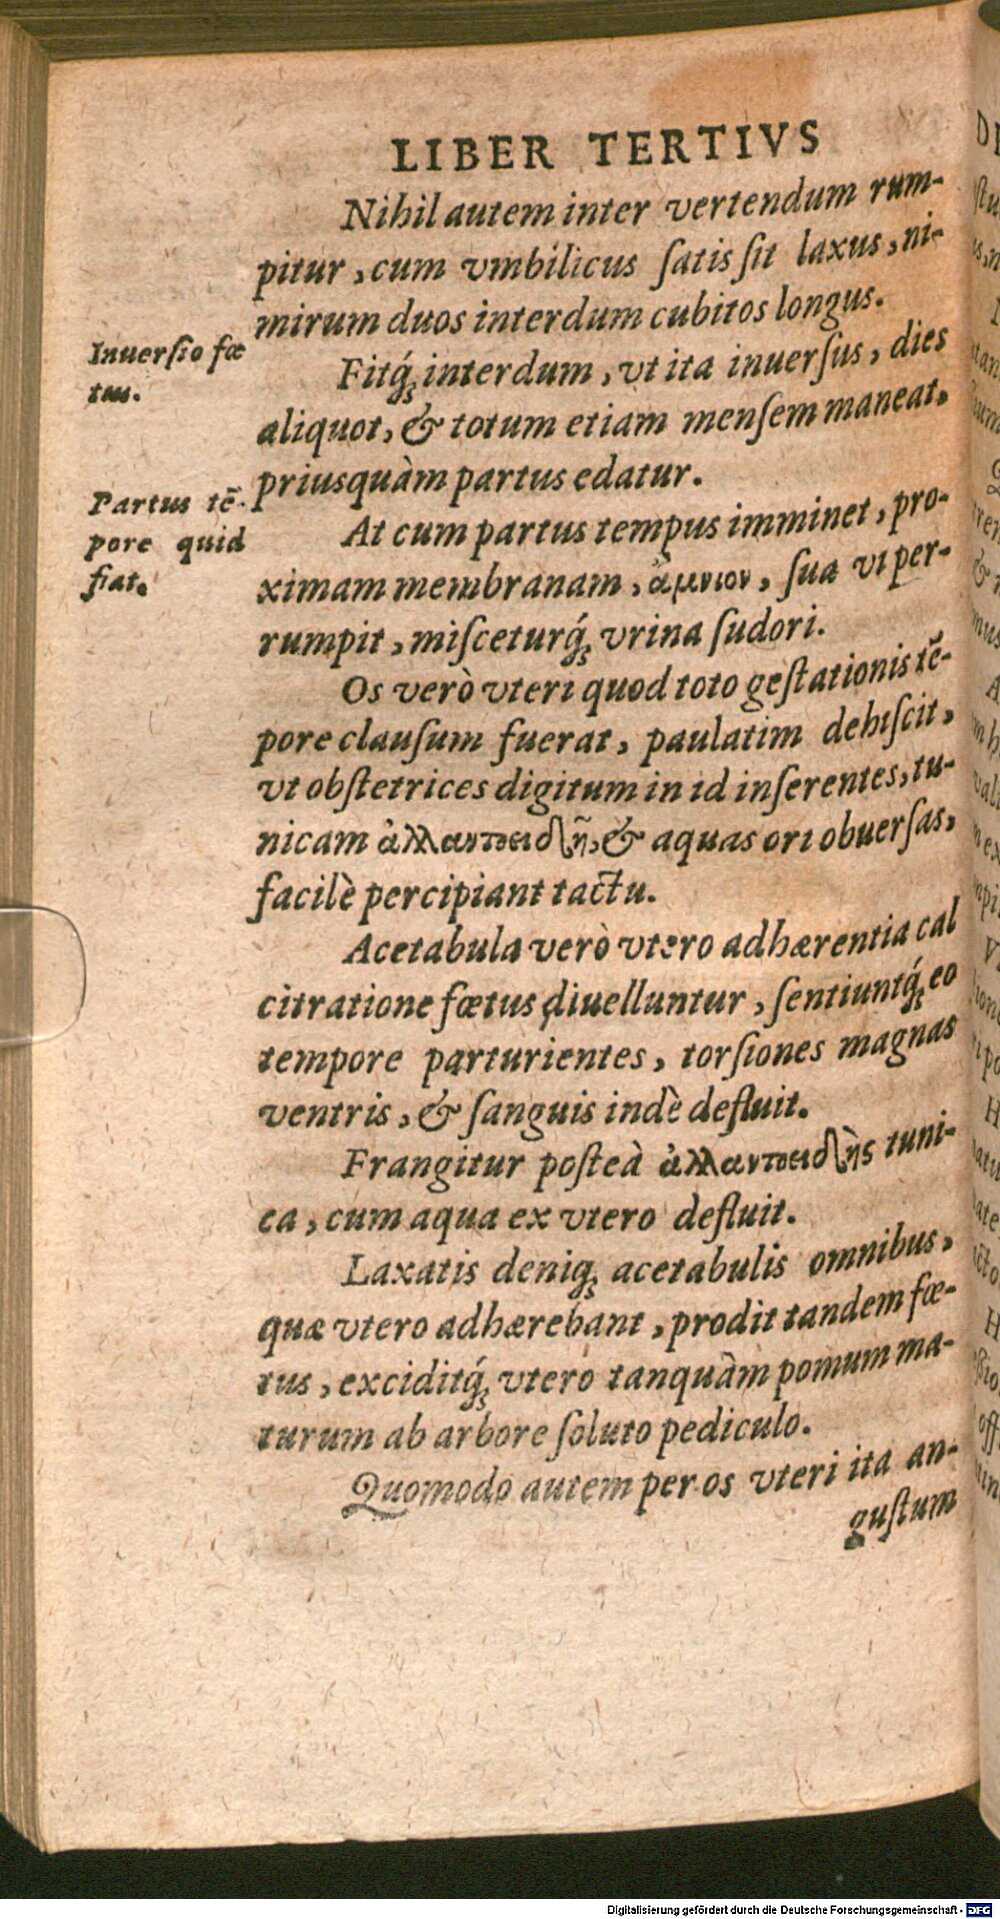 LIBER TERTIVS
Nihil autem inter vertendum rum-
pitur, cum vmbilicus ſatis ſit laxus, ni-
mirum duos interdum cubitos longus.
Inuerſio fœ
tus.
Fitq́; interdum, vt ita inuerſus, dies
aliquot, & totum etiam menſem maneat,
priusquàm partus edatur.
Partus tē-
pore quid
fiat.
At cum partus tempus imminet, pro-
ximam membranam, ἄμνιον, ſua vi per-
rumpit, miſceturq́; vrina ſudori.
Os verò vteri quod toto geſtationis tē-
pore clauſum fuerat, paulatim dehiſcit,
vt obſtetrices digitum in id inſerentes, tu-
nicam ἀλλαντοειδῆ, & aquas ori obuerſas,
facilè percipiant tactu.
Acetabula verò vtero adhærentia cal
citratione fœtus diuelluntur, ſentiuntq́; eo
tempore parturientes, torſiones magnas
ventris, & ſanguis indè defluit.
Frangitur poſteà ἀλλαντοειδὴς tuni-
ca, cum aqua ex vtero defluit.
Laxatis deniq; acetabulis omnibus,
quæ vtero adhærebant, prodit tandem fœ-
tus, exciditq́; vtero tanquàm pomum ma-
turum ab arbore ſoluto pediculo.
Quomodo autem per os vteri ita an-
guſtum
Digitalisierung gefördert durch die Deutsche Forschungsgemeinschaft - DFG